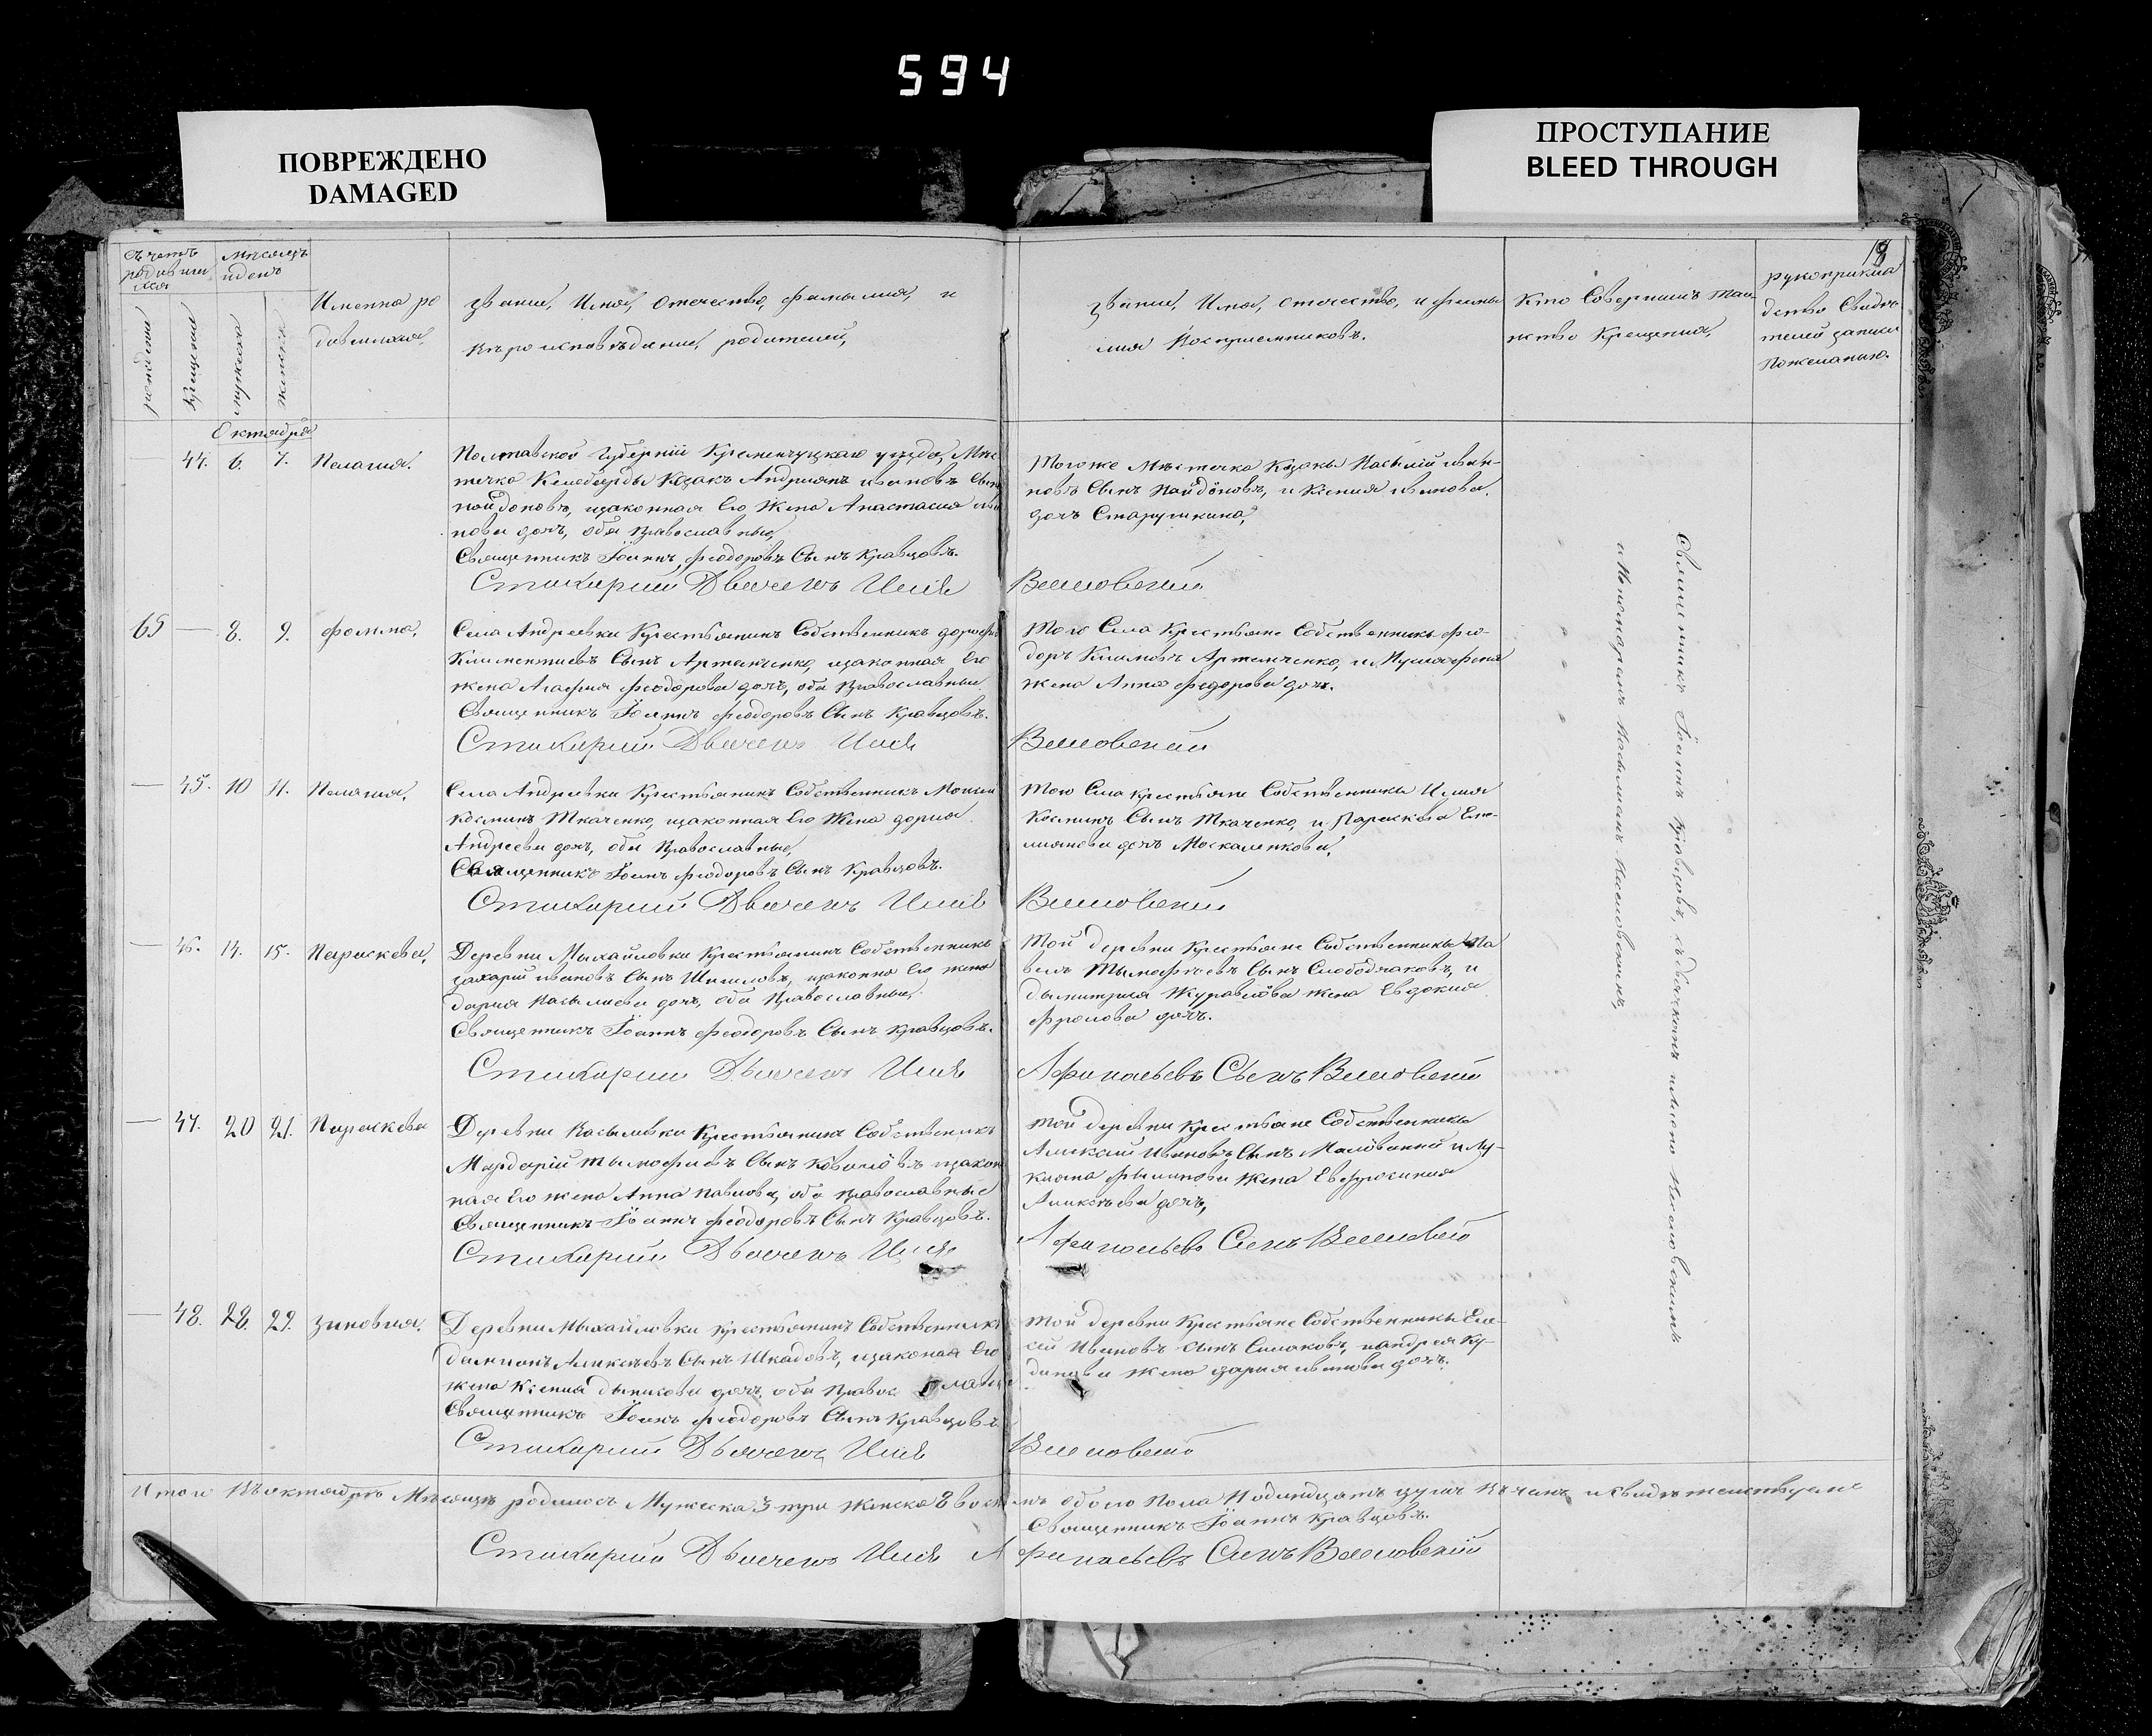 594
ПОВРЕЖДЕНО
DAMAGED
ПРОСТУПАНИЕ
BLEED THROUGH
Имена ро
званіе, Имя, отечество, фамилия, и
вероисповѣданіе, родителей,
рождения
Крещения
мужеска
женска
званіе, Имя, отечество, и фами
лия Воспріемниковъ.
Кто Совершилъ таи
нство Крещения,
рукоприкла
дство Свидѣ
телей записи
Пожеланию.
Октября
44. 6. 7. Пелагия.
Полтавской Губерніи Кременчугскаго уѣзда, Мѣс
течка Келеберды Козакъ Андриянъ ивановъ Сынъ
найдоновъ, изаконная Его Жена Анастасия ива
нова дочь, оба Православные,
Священникъ Іоаннъ феодоровъ Сынъ Кравцовъ.
Стихарний Дьячекъ Илия
Тогоже Мѣстечка Козаки Василій ива-
новъ Сынъ Найдоновъ, и Ксения иванова
дочь Старушкина,
65 — 8. 9. фомма,
Села Андреевки Крестьянинъ Собственникъ дорофей
Климентиевъ Сынъ Артеменко, изаконная Его
жена Агафия феодорова дочь, оба Православные
Священникъ Іоаннъ феодоровъ Сынъ Кравцовъ.
Стихарний Дьячекъ Илия
Того Села Крестьяне Собственники фео-
доръ Климовъ Артемченко, и
жена Анна федорова дочь.
— 45. 10 11. Пелагия,
Села Андреевки Крестьянинъ Собственникъ Моисей
Косминъ Ткаченко, изаконная Его Жена дария
Андреева дочь, оба Православные
Священникъ Іоанъ феодоровъ Сынъ Кравцовъ.
Стихарний Дьячекъ Илия
Того Села крестьяне Собственники Илия
Косминъ Сынъ Ткаченко, и Параскева Еме-
лиянова дочь Москаленкова,
— 46. 14. 15. Параскева,
Деревни Мыхайловки Крестьянинъ Собственникъ
захарий ивановъ Сынъ Шпиловъ, изаконна Его жена
дария Васылиева дочь, оба Православные
Священникъ Іоаннъ феодоровъ Сынъ Кравцовъ.
Стихарний Дьячекъ Илия
Той деревни крестьяне Собственники Па
велъ Тымофѣевъ Сынъ Слободчаковъ, и
дымитрия Журавлёва жена Евдокия
Фролова дочь.
Афанасьевъ Сынъ
— 47. 20 21. Параскева
Деревни Васылевки Крестьянинъ Собственникъ
Мардарій тымофиевъ Сынъ Ковалёвъ изакон
ная Его жена Анна павлова, оба православные
Священникъ Іоаннъ феодоровъ Сынъ Кравцовъ.
Стихарний Дьячекъ Илия
той деревни крестьяне Собственники
Алексий Ивановъ Сынъ Малёванный и Лу-
кияна жена Евфросиния
Алексѣева дочь,
Афанасьевъ Сынъ
— 48. 28. 29. зиновия.
Деревни Мыхайловки крестьянинъ Собственникъ
дамиянъ Алексѣевъ Сынъ Шкадовъ, изаконая Его
жена Ксения дыникова дочь, оба Православ
Священникъ Іоанъ феодоровъ Сынъ Кравцовъ
Стихарний Дьячекъ Илия
той деревни крестьяне Собственники Ели-
сей Ивановъ Сынъ Симаковъ, иандрея Ку-
динова жена дария иванова дочь.
Священникъ Іоаннъ Кравцовъ, съ дьячкомъ
Итого Въ октябрѣ Мѣсяцѣ родилось Мужеска 3 три Женска 8 восемь обоего Пола 11 одинадцать душъ
Священникъ Іоаннъ Кравцовъ.
Стихарний Дьячекъ Илия Афанасьевъ Сынъ